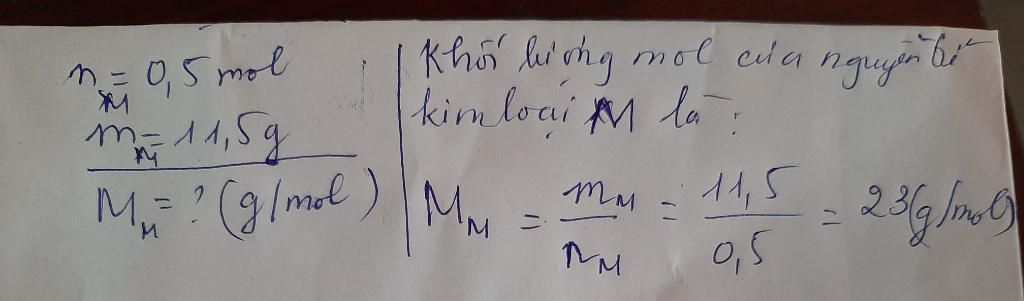 n_M = 0,5 mol
m_M = 11,5g
M_M = ? (g/mol)
Khối lượng mol của nguyên tố
kim loại M là :
M_M = m_M / n_M = 11,5 / 0,5 = 23(g/mol)